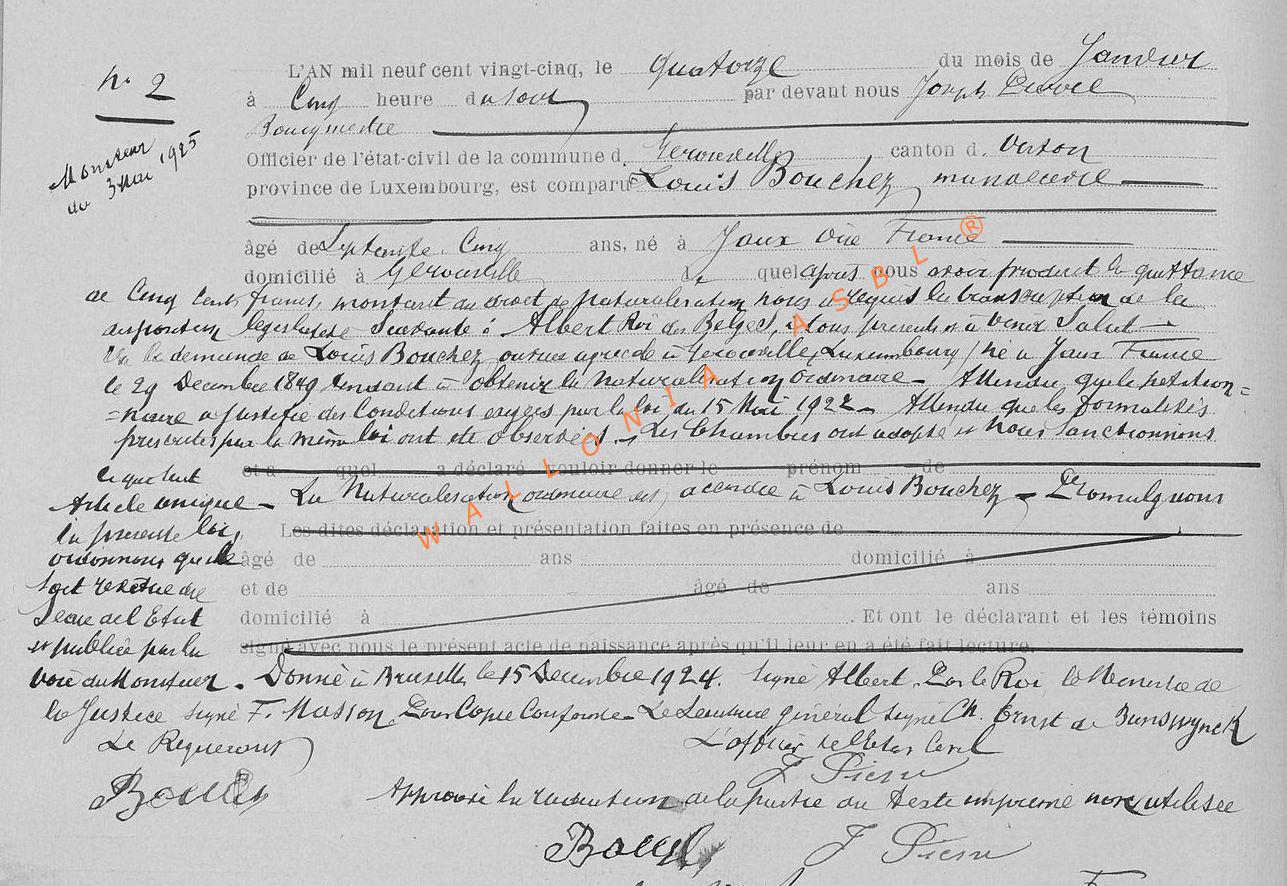 N° 2
L'AN mil neuf cent vingt-cinq, le quatorze du mois de Janvier
à Cinq heure du soir par devant nous Joseph
Bourgmestre
Moniteur du 3 Mai 1925
Officier de l'état-civil de la commune d. Gerouville, canton d. Virton
province de Luxembourg, est comparu Louis Bouchez,
âgé de Septante Cinq ans, né à Jaux Oise France
domicilié à Gerouville lequel après nous avoir produit la quittance
de Cinq Cents francs, montant du droit de Naturalisation nous a requis la transcription de la
disposition législative Suivante : Albert Roi des Belges, à tous présents et à venir Salut
Vu la demande de Louis Bouchez, agricole à Gerouville (Luxembourg) né à Jaux France
le 29 Décembre 1849 tendant à obtenir la Naturalisation Ordinaire – Attendu que le pétition=
=naire a justifié des Conditions exigées par la loi du 15 Mai 1922 – Attendu que les Formalités
prescrites par la même loi ont été observées. – Les Chambres ont adopté et Nous Sanctionnons
ce qui suit
et a quel a déclaré vouloir donner le prénom de
Article unique – La Naturalisation ordinaire est accordée à Louis Bouchez – Promulguons
Les dites déclaration et présentation faites en présence de
la présente loi,
ordonnons qu'elle
âgé de ans domicilié à
soit revêtue du
et de âgé de ans
Sceau de l'Etat
domicilié à . Et ont le déclarant et les témoins
et publiée par la
signé avec nous le présent acte de naissance après qu'il leur en a été fait lecture.
voie du Moniteur. Donné à Bruxelles le 15 Décembre 1924. Signé Albert. Par le Roi, le Ministre de
la Justice signé F. Masson. Pour Copie Conforme – Le Secrétaire général signé Ch. Ernst de Bunswynck
Le Requérant L'officier de l'Etat Civil
J. Pierre
Approuvé la radiation de la partie du Texte imprimé non utilisée
J. Pierre
WALLONIA ASBL ®